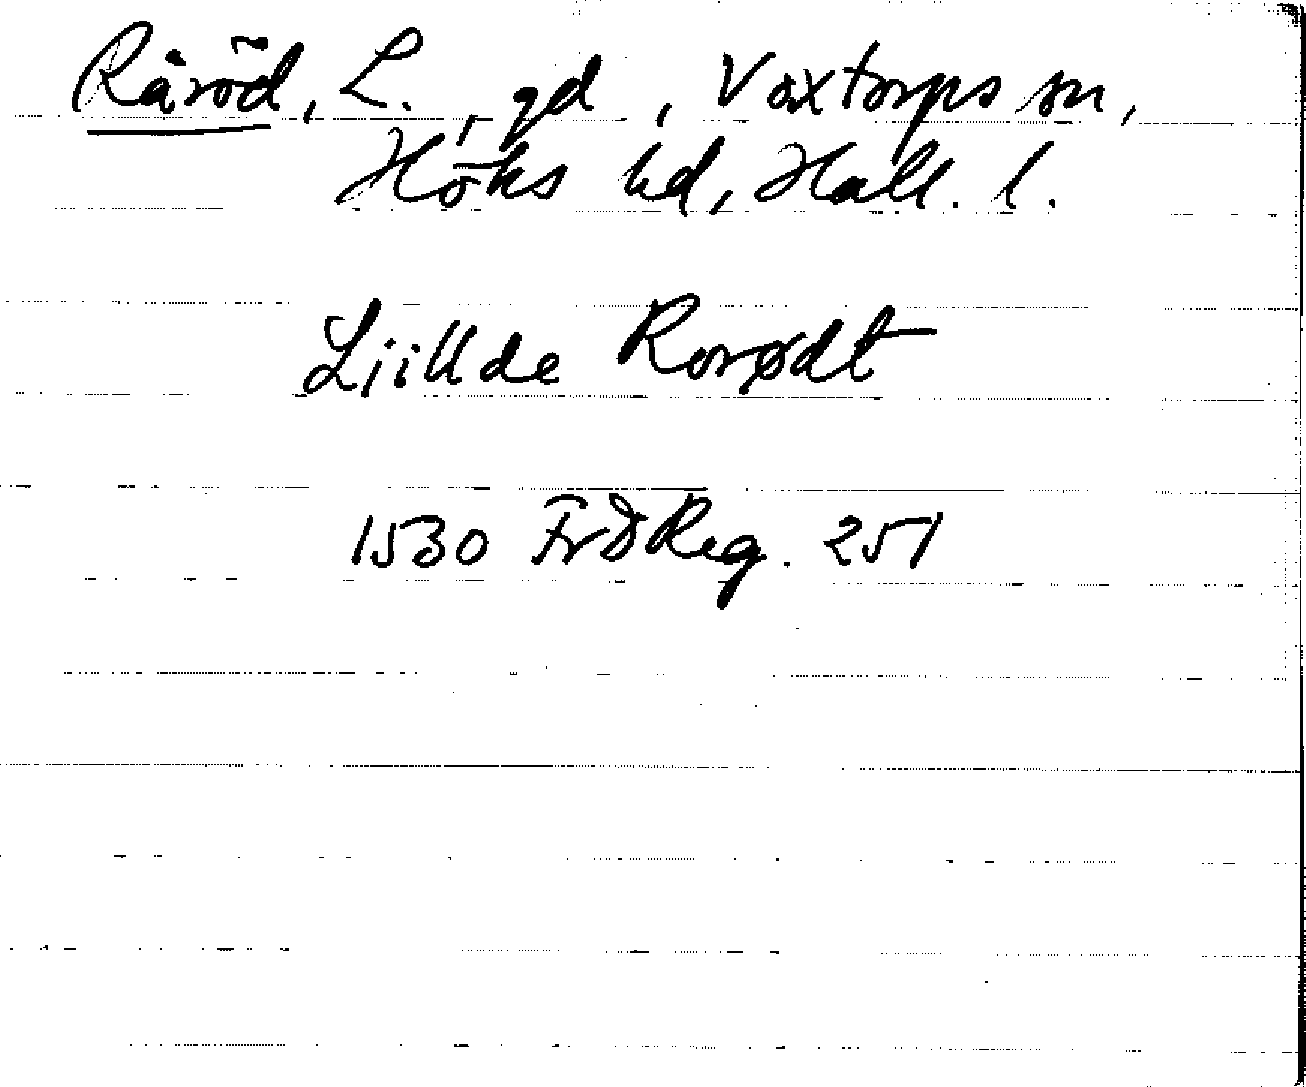 Råröd, L., gd, Voxtorps sn,
Höks hd, Hall. l.
Liillde Rorødt
1530 FrdReg. 251